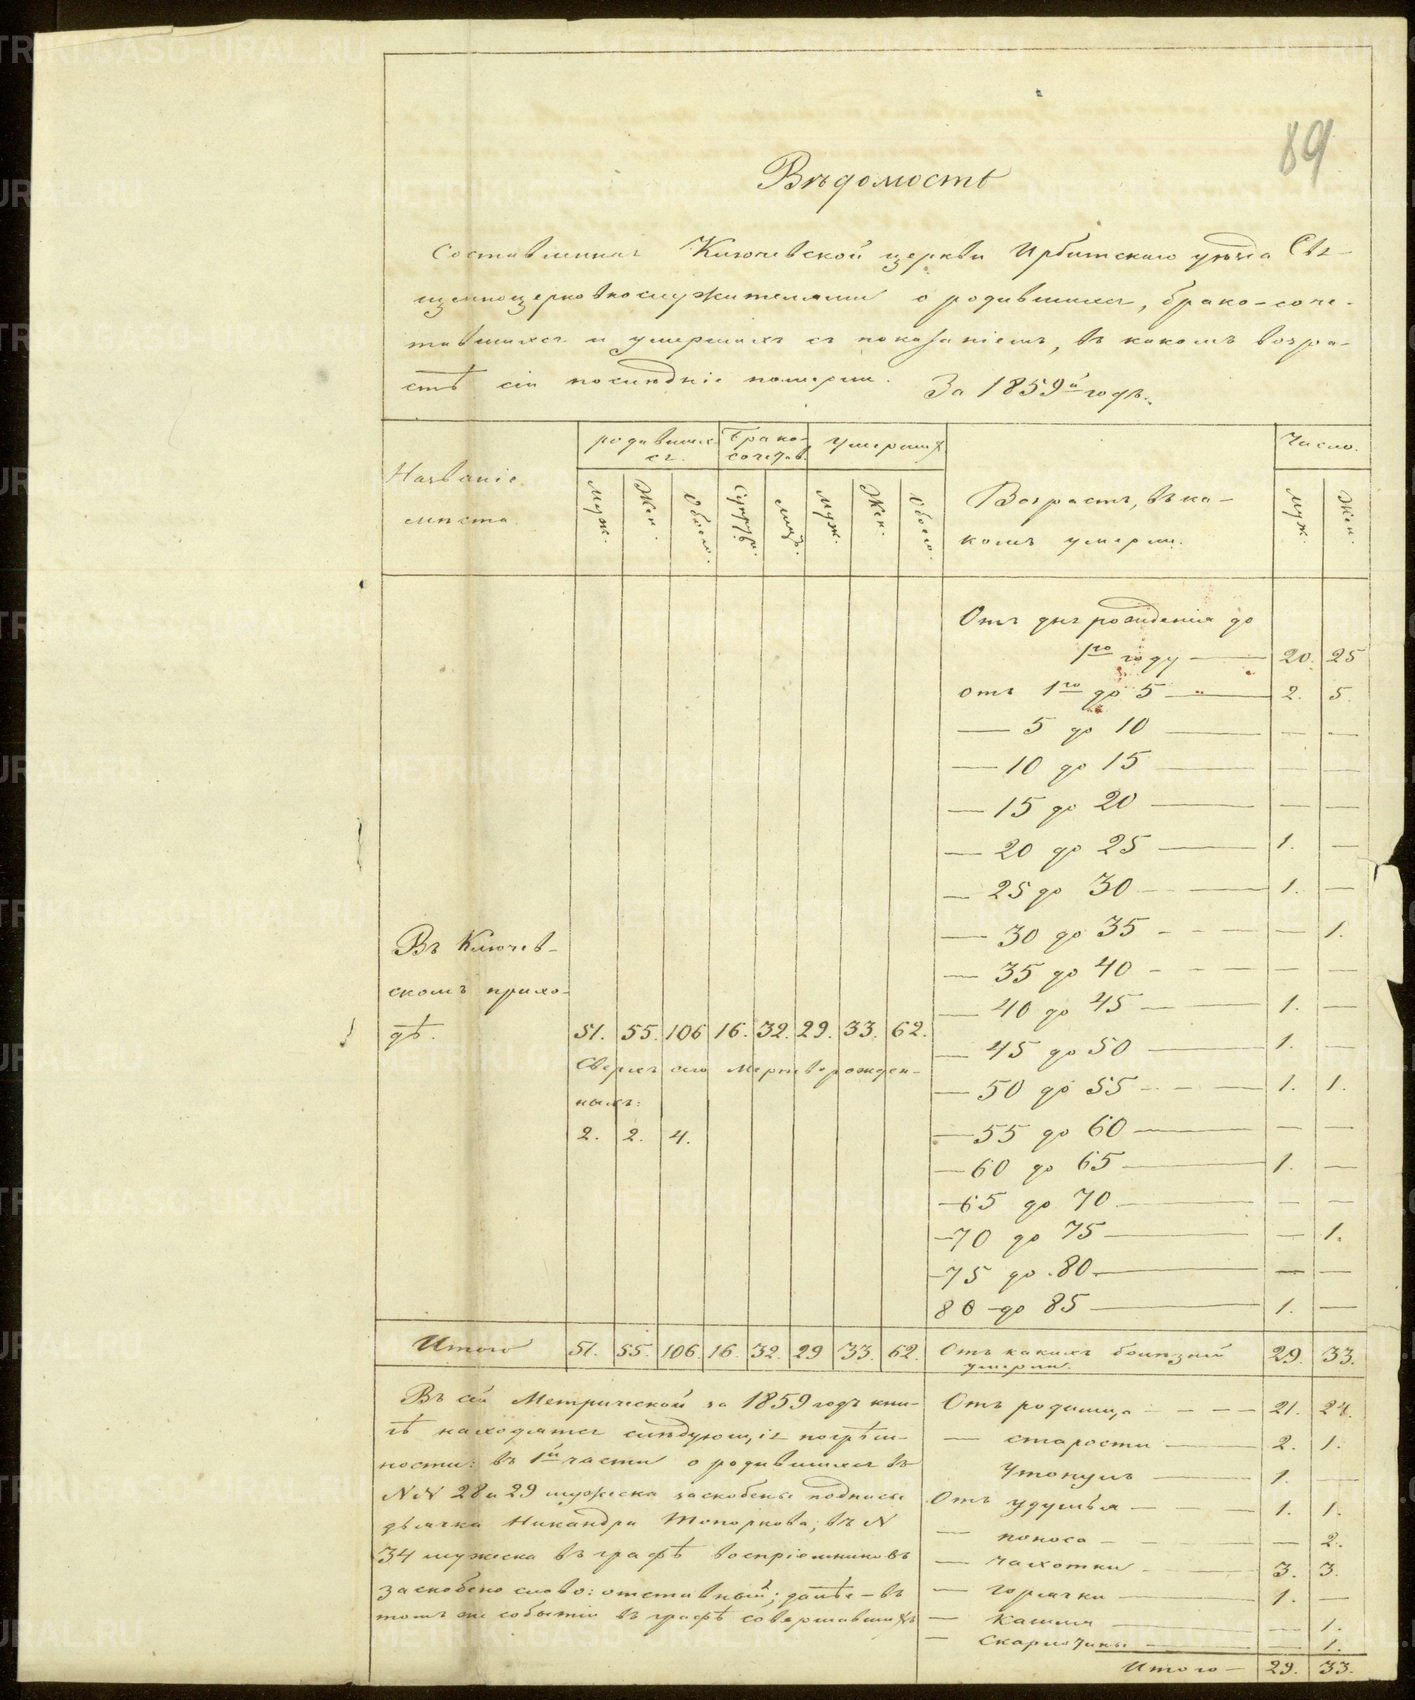 89
Вѣдомость
Составленная Ключевской церкви Ирбитскаго уѣзда Свя-
щенноцерковнослужителями о родившихся, брако-соче-
тавшихся и умершихъ съ показаніемъ, въ какомъ возра-
стѣ сіи послѣдніе померли. За 1859й годъ.
Названіе мѣста.
родившихся. Брако-сочетав. Умершихъ
Возрастъ, въ ка-
комъ умерли.
Число.
Муж. Жен. Обоего. Супруж. Лицъ. Муж. Жен. Обоего. Муж. Жен.
Отъ дня рожденія до
1го году — 20. 25
отъ 1го до 5 — 2. 5.
— 5 до 10 — — —
— 10 до 15 — — —
— 15 до 20 — — —
— 20 до 25 — 1. —
— 25 до 30 — 1. —
— 30 до 35 — — 1.
— 35 до 40 — — —
— 40 до 45 — 1. —
— 45 до 50 — 1. —
— 50 до 55 — 1. 1.
— 55 до 60 — — —
— 60 до 65 — 1. —
— 65 до 70 — — —
— 70 до 75 — — 1.
— 75 до 80 — — —
80 до 85 — 1. —
Въ Ключев-
скомъ прихо-
дѣ. 51. 55. 106 16. 32. 29. 33. 62.
Сверхъ сего мертворожден-
ныхъ:
2. 2. 4.
Итого 51. 55. 106. 16. 32. 29 33. 62.
Отъ какихъ болѣзней
умерли. 29. 33.
Въ сей Метрической за 1859 годъ кни-
гѣ находятся слѣдующія погрѣш-
ности: въ 1й части о родившихся въ
NN 28 и 29 мужеска заскоблены подписи
дьячка Никандра Топоркова; въ N
34 мужеска въ графѣ воспріемниковъ
заскоблено слово: отставный; далѣе – въ
томъ же событіи въ графѣ совершавшихъ
Отъ родимца — 21. 24.
— старости — 2. 1.
Утонулъ — 1. —
Отъ удушья — 1. 1.
— поноса — — 2.
— чахотки — 3. 3.
— горячки — 1. —
— Кашля — — 1.
— Скарлатины — — 1.
Итого — 29. 33.